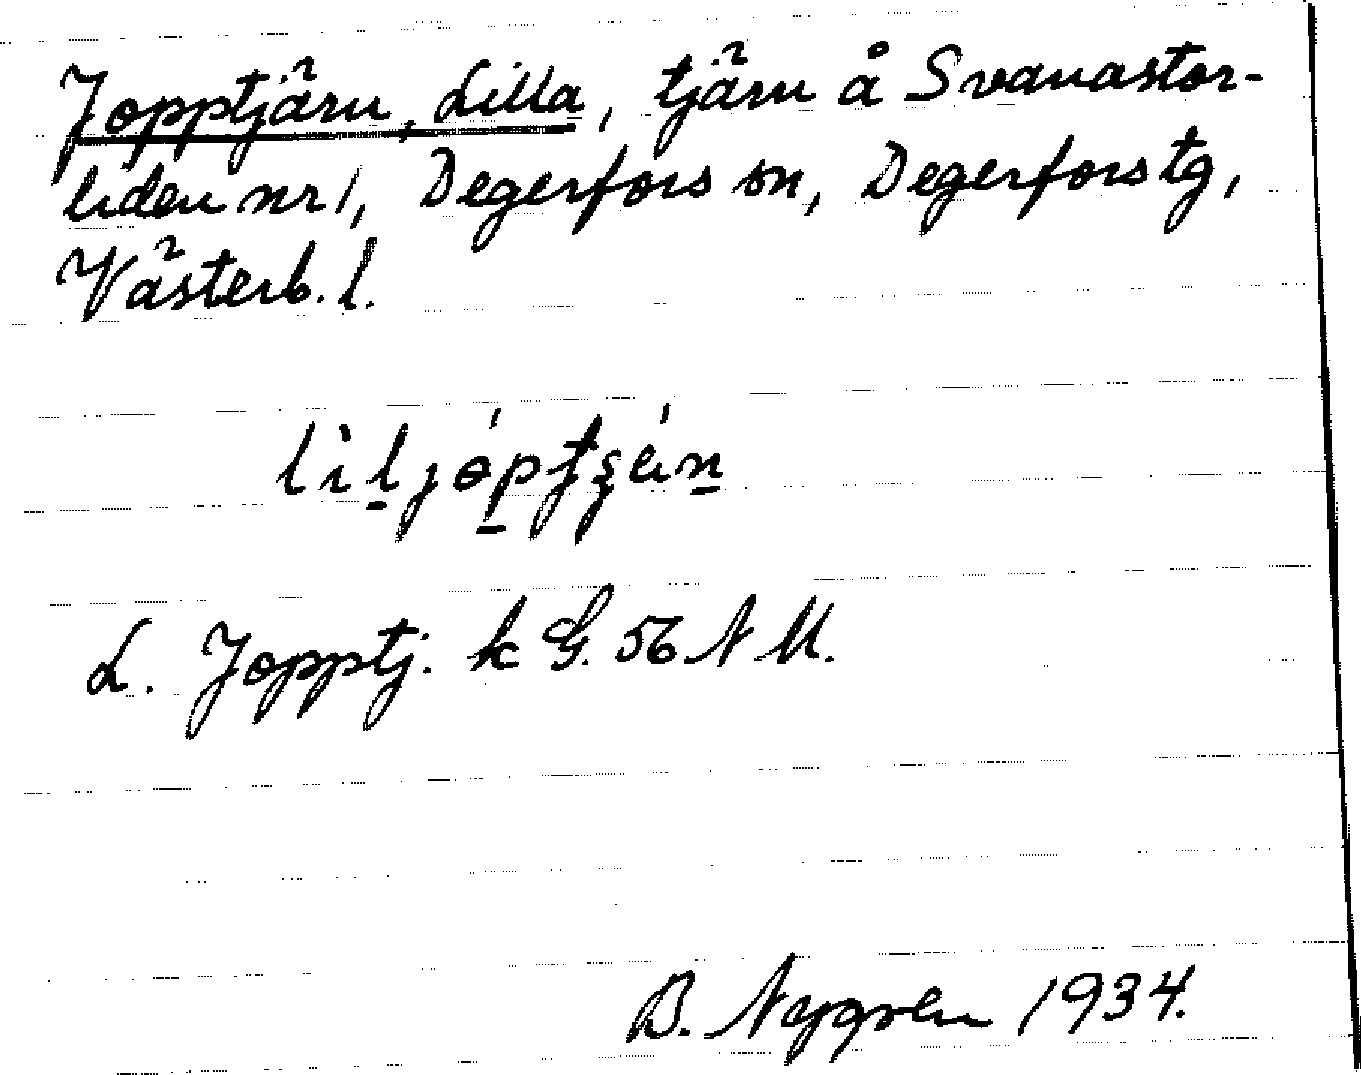 Jopptjärn, Lilla, tjärn å Svanastor-
liden nr 1, Degerfors sn, Degerfors tg,
Västerb. l.
L. Jopptj. k G. 56 N M.
B. Nygren 1934.